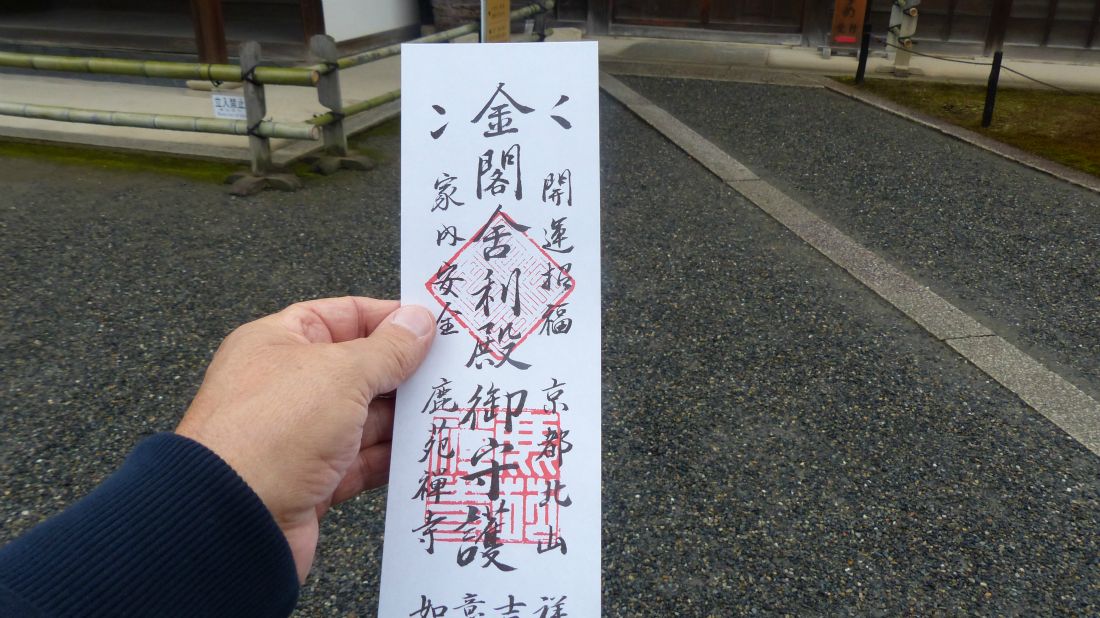 開運招福
京都北山
金閣舎利殿御守護
家内安全
鹿苑禅寺
如意吉祥
立入禁止